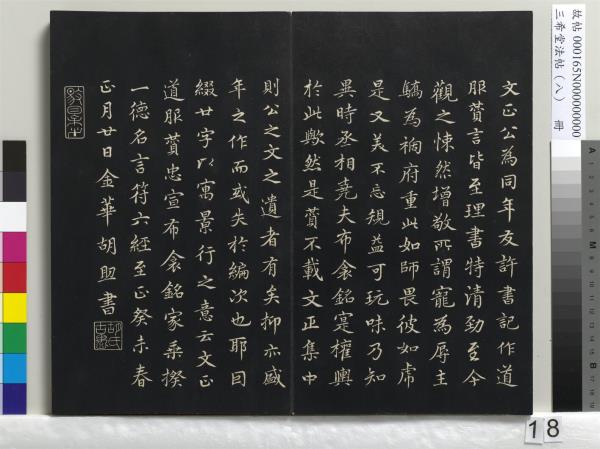 故帖 000165N000000000
三希堂法帖(八) 冊
文正公為同年友許書記作道
服贊言皆至理書特清勁至今
觀之悚然增敬所謂寵為辱主
驕為禍府重此如師畏彼如虎
是又美不忘規益可玩味乃知
異時丞相堯夫布衾銘寔權輿
於此歟然是贊不載文正集中
則公之文之遺者有矣抑亦盛
年之作而或失於編次也耶囙
綴廿字以寓景行之意云文正
道服贊忠宣布衾銘家乘揆
一德名言符六經至正癸未春
正月廿日金華胡助書
胡氏古愚
18